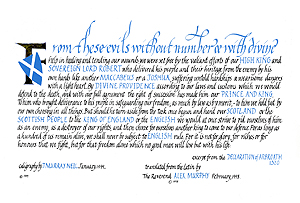 From these evils without number we with divine
help in healing and tending our wounds we were set free by the valiant efforts of our HIGH KING and
SOVEREIGN LORD ROBERT who delivered his people and their heritage from the enemy by his
own hands like another MACCABEUS or a JOSHUA, suffering untold hardships & wearisome dangers
with a light heart. By DIVINE PROVIDENCE according to our laws and customs which we would
defend to the death, and with our full agreement the right of succession has made him our PRINCE AND KING.
Him who brought deliverance to his people in safeguarding our freedom, as much by law as by merit, to him we hold fast by
our own choosing in all things. But should he turn aside from the task once begun and hand our SCOTLAND or the
SCOTTISH PEOPLE to the KING OF ENGLAND or the ENGLISH we would at once strive to put ourselves of him
as an enemy, as a destroyer of our rights, and then choose for ourselves another king to come to our defence. For as long as
a hundred of us remain alive, we shall never be subject to ENGLISH rule. For it is not for glory, for riches or for
honours that we fight, but for that freedom alone which no good man will lose but with his life.
excerpt from the DECLARATION of ARBROATH
1320
calligraphy by MURRAY NEIL January 1998.
translated from the Latin by
The Reverend ALEX MURPHY February 1998.